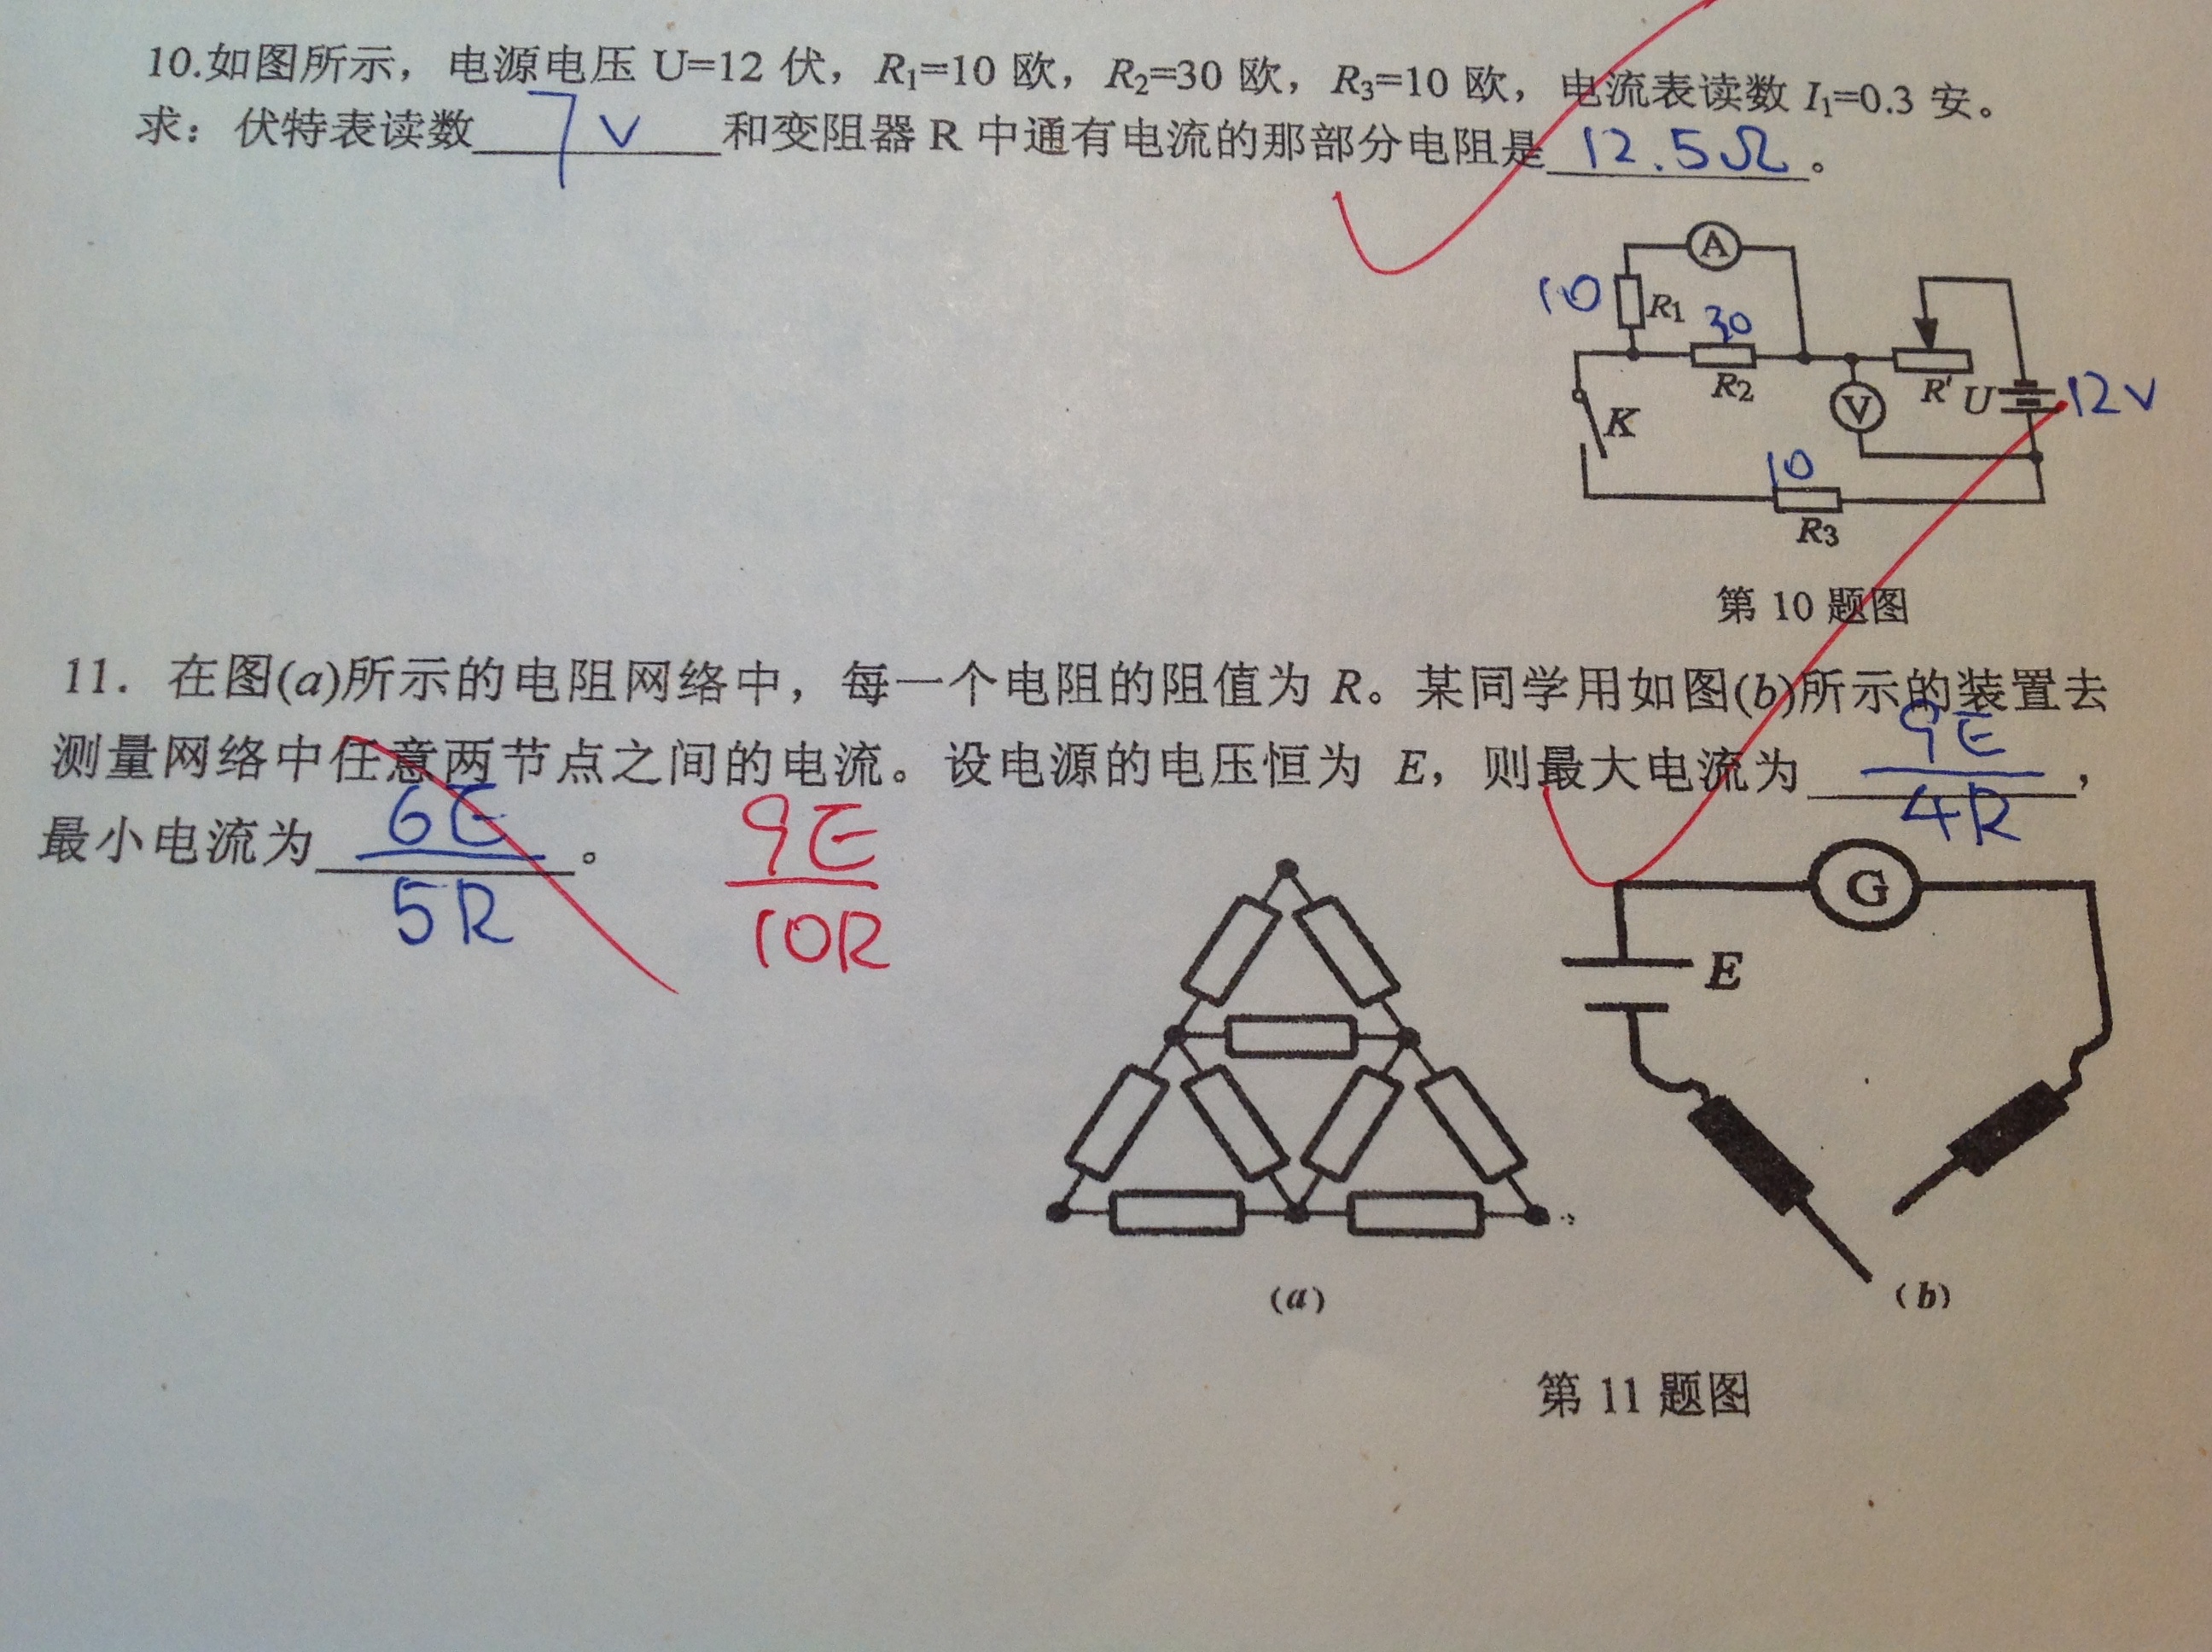 10.如图所示，电源电压 U=12 伏，R₁=10 欧，R₂=30 欧，R₃=10 欧，电流表读数 I₁=0.3 安。
求：伏特表读数 7V 和变阻器 R 中通有电流的那部分电阻是 12.5Ω 。
A
10
R₁
30
R₂
R'
U
12V
V
K
10
R₃
第 10 题图
11. 在图(a)所示的电阻网络中，每一个电阻的阻值为 R。某同学用如图(b)所示的装置去
测量网络中任意两节点之间的电流。设电源的电压恒为 E，则最大电流为 9E/4R ，
最小电流为 6E/5R 。 9E/10R
G
E
(a)
(b)
第 11 题图